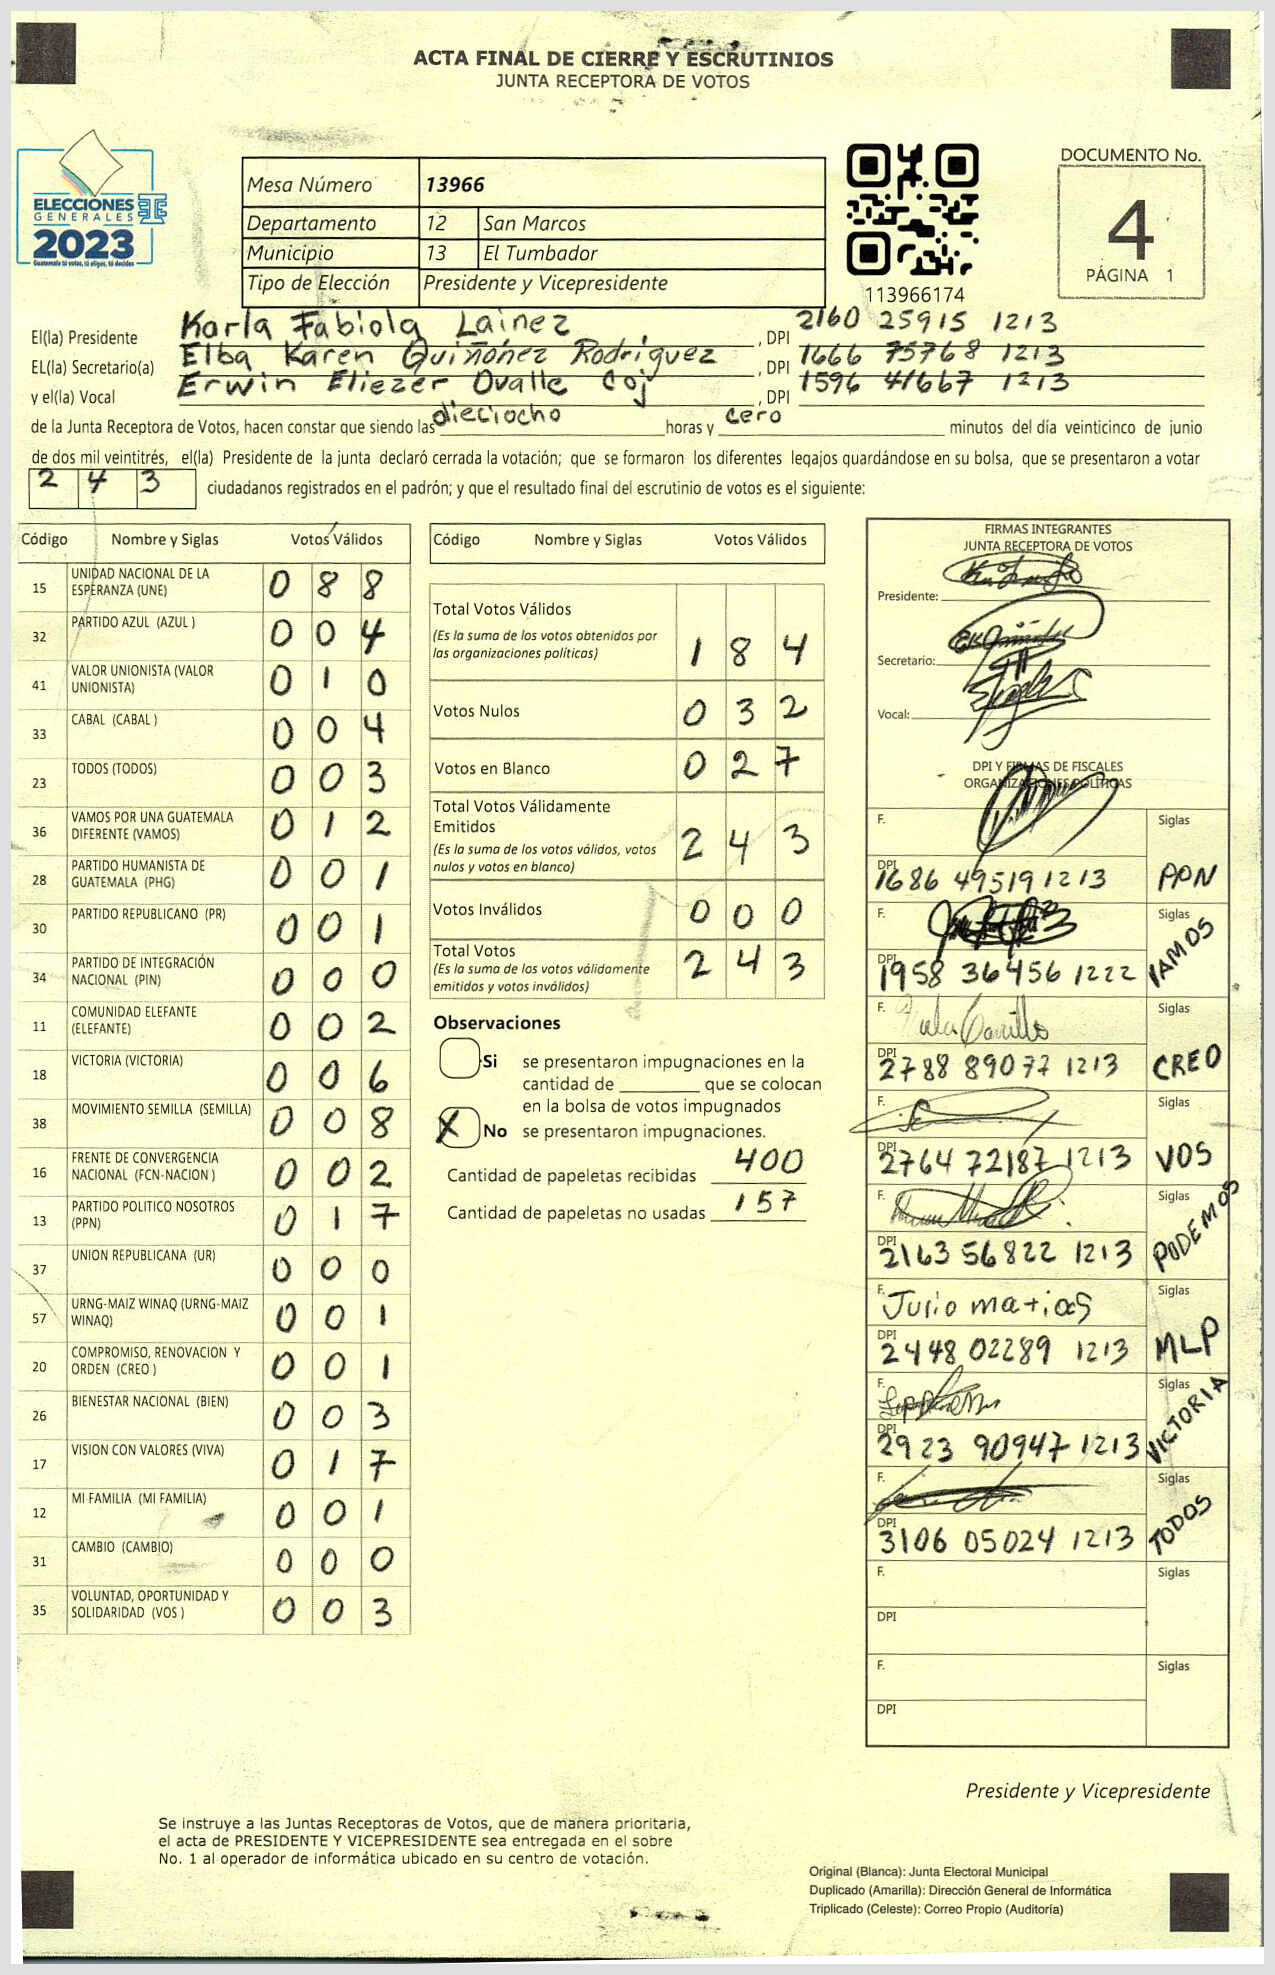 ACTA FINAL DE CIERRE Y ESCRUTINIOS
JUNTA RECEPTORA DE VOTOS
ELECCIONES
GENERALES
2023
Guatemala tú votas, tú eliges, tú decides
Mesa Número 13966
Departamento 12 San Marcos
Municipio 13 El Tumbador
Tipo de Elección Presidente y Vicepresidente
113966174
DOCUMENTO No.
4
PÁGINA 1
El(la) Presidente Karla Fabiola Lainez, DPI 2160 25915 1213
EL(la) Secretario(a) Elba Karen Quiñónez Rodríguez, DPI 1666 75768 1213
y el(la) Vocal Erwin Eliezer Ovalle Coj, DPI 1596 41667 1213
de la Junta Receptora de Votos, hacen constar que siendo las dieciocho horas y cero minutos del día veinticinco de junio
de dos mil veintitrés, el(la) Presidente de la junta declaró cerrada la votación; que se formaron los diferentes legajos guardándose en su bolsa, que se presentaron a votar
2 4 3 ciudadanos registrados en el padrón; y que el resultado final del escrutinio de votos es el siguiente:
Código Nombre y Siglas Votos Válidos
15 UNIDAD NACIONAL DE LA ESPERANZA (UNE) 0 8 8
32 PARTIDO AZUL (AZUL ) 0 0 4
41 VALOR UNIONISTA (VALOR UNIONISTA) 0 1 0
33 CABAL (CABAL ) 0 0 4
23 TODOS (TODOS) 0 0 3
36 VAMOS POR UNA GUATEMALA DIFERENTE (VAMOS) 0 1 2
28 PARTIDO HUMANISTA DE GUATEMALA (PHG) 0 0 1
30 PARTIDO REPUBLICANO (PR) 0 0 1
34 PARTIDO DE INTEGRACIÓN NACIONAL (PIN) 0 0 0
11 COMUNIDAD ELEFANTE (ELEFANTE) 0 0 2
18 VICTORIA (VICTORIA) 0 0 6
38 MOVIMIENTO SEMILLA (SEMILLA) 0 0 8
16 FRENTE DE CONVERGENCIA NACIONAL (FCN-NACION ) 0 0 2
13 PARTIDO POLITICO NOSOTROS (PPN) 0 1 7
37 UNION REPUBLICANA (UR) 0 0 0
57 URNG-MAIZ WINAQ (URNG-MAIZ WINAQ) 0 0 1
20 COMPROMISO, RENOVACION Y ORDEN (CREO ) 0 0 1
26 BIENESTAR NACIONAL (BIEN) 0 0 3
17 VISION CON VALORES (VIVA) 0 1 7
12 MI FAMILIA (MI FAMILIA) 0 0 1
31 CAMBIO (CAMBIO) 0 0 0
35 VOLUNTAD, OPORTUNIDAD Y SOLIDARIDAD (VOS ) 0 0 3
Código Nombre y Siglas Votos Válidos
Total Votos Válidos
(Es la suma de los votos obtenidos por
las organizaciones políticas) 1 8 4
Votos Nulos 0 3 2
Votos en Blanco 0 2 7
Total Votos Válidamente
Emitidos
(Es la suma de los votos válidos, votos
nulos y votos en blanco) 2 4 3
Votos Inválidos 0 0 0
Total Votos
(Es la suma de los votos válidamente
emitidos y votos inválidos) 2 4 3
Observaciones
Si se presentaron impugnaciones en la
cantidad de ________ que se colocan
en la bolsa de votos impugnados
X No se presentaron impugnaciones.
Cantidad de papeletas recibidas 400
Cantidad de papeletas no usadas 157
FIRMAS INTEGRANTES
JUNTA RECEPTORA DE VOTOS
Presidente:
Secretario:
Vocal:
DPI Y FIRMAS DE FISCALES
ORGANIZACIONES POLÍTICAS
F. Siglas
DPI 1686 49519 1213 PPN
F. Siglas
DPI 1958 36456 1222 VAMOS
F. Siglas
DPI 2788 89077 1213 CREO
F. Siglas
DPI 2764 72187 1213 VOS
F. Siglas
DPI 2163 56822 1213 PODEMOS
F. Julio matias Siglas
DPI 2448 02289 1213 MLP
F. Siglas
DPI 2923 90947 1213 VICTORIA
F. Siglas
DPI 3106 05024 1213 TODOS
F. Siglas
DPI
F. Siglas
DPI
Presidente y Vicepresidente
Se instruye a las Juntas Receptoras de Votos, que de manera prioritaria,
el acta de PRESIDENTE Y VICEPRESIDENTE sea entregada en el sobre
No. 1 al operador de informática ubicado en su centro de votación.
Original (Blanca): Junta Electoral Municipal
Duplicado (Amarilla): Dirección General de Informática
Triplicado (Celeste): Correo Propio (Auditoría)